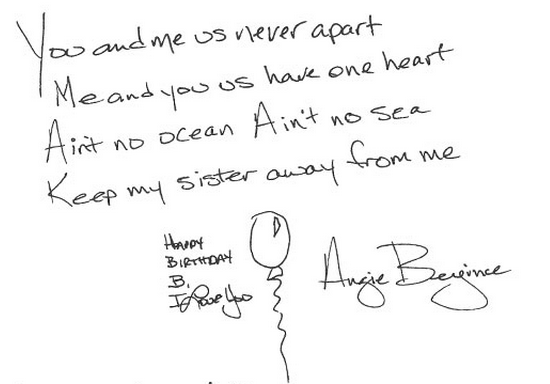 You and me us never apart
Me and you us have one heart
Ain't no ocean Ain't no sea
Keep my sister away from me
HAPPY
BIRTHDAY
B.
I Love You
Angie Beyince